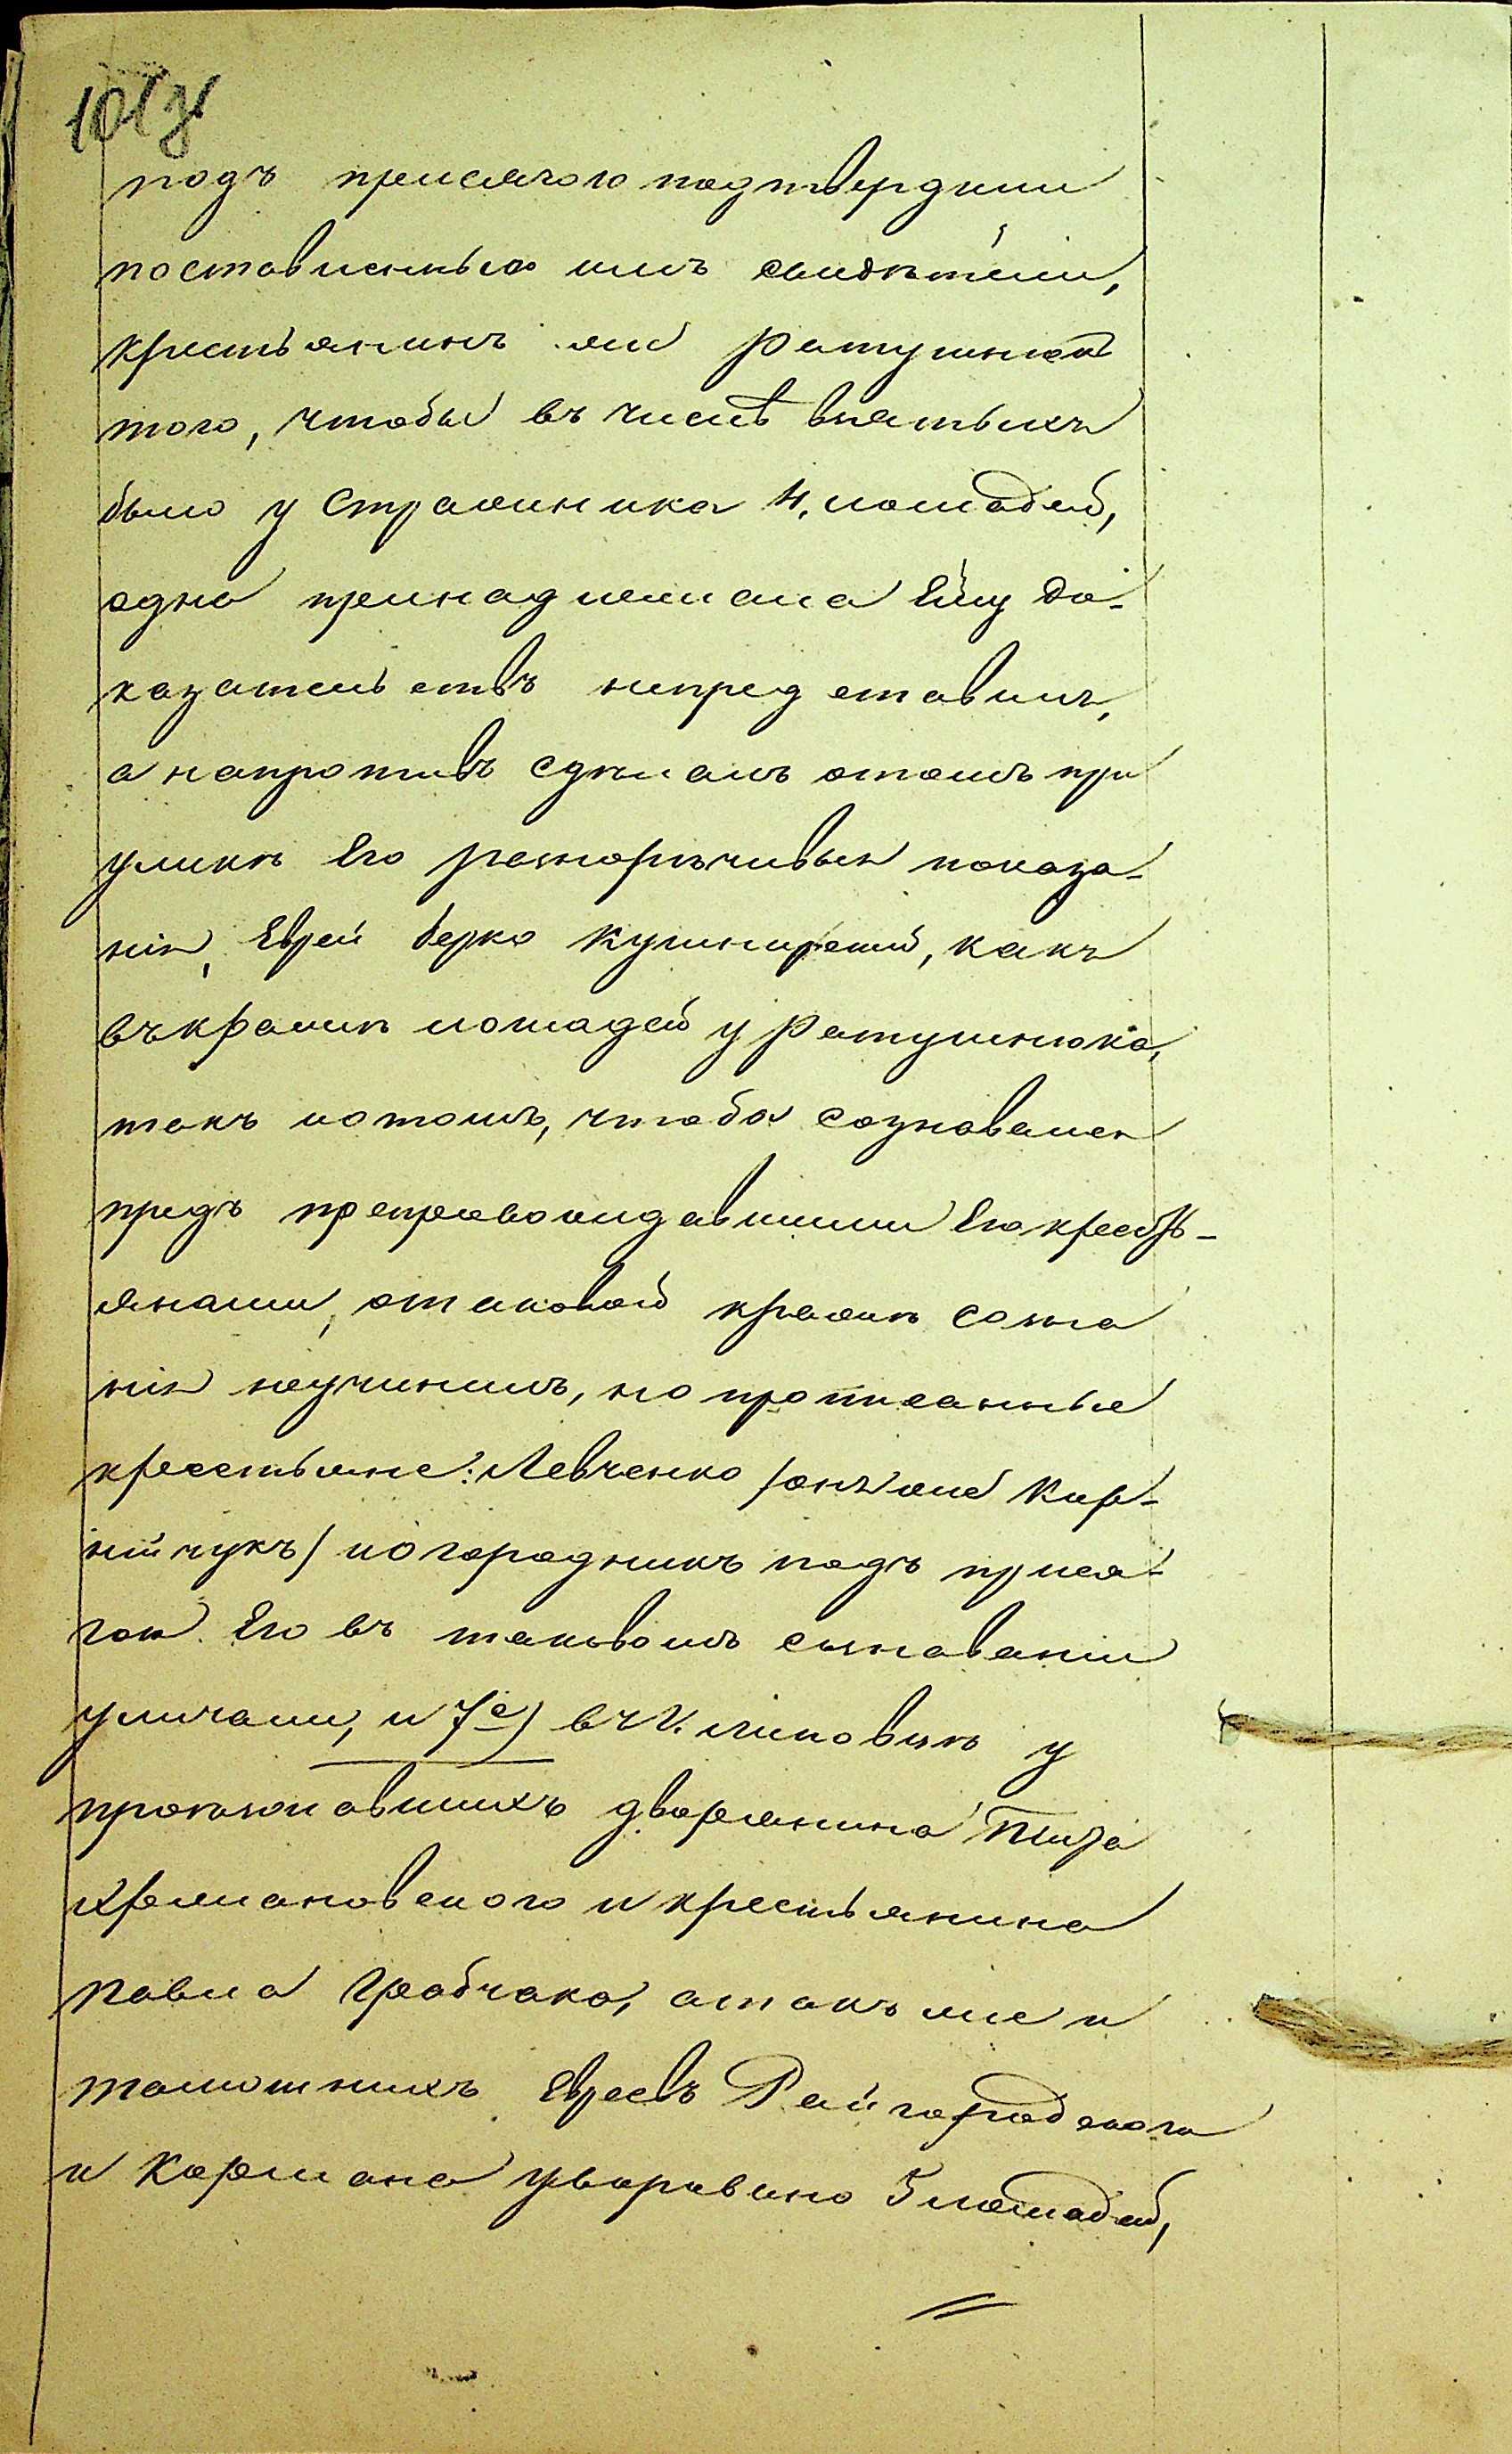 подъ присягою подтвердили
поставленныя имъ свидѣтели,
крестьянинъ же Ратушнюкъ
того, чтобы въ числѣ взятыхъ
было у Стражника 4. лошадей,
одна принадлежала Ему до-
казательствъ непредставилъ,
а напротивъ сдѣлалъ отомъ при
уликѣ Его разнорѣчивыя показа-
нія, Еврей Берко Кушнирскій, какъ
въ кражѣ лошадей у Ратушнюка,
такъ и отомъ, чтобы сознавался
предъ препровождавшими Его кресть-
янами, отаковой кражѣ созна
нія неучинилъ, но прописанные
крестьяне: Левченко /онъ же Кор-
нійчукъ/ и огородникъ подъ прися-
гою Его въ таковомъ сознаваніи
уличали, и 7е) въ с. у
проживавшихъ дворянина
и крестьянина
Павла Грабчака, атакъ же и
тамошнихъ Евреевъ Райгородскаго
и Кормана уворовано 5 лошадей,